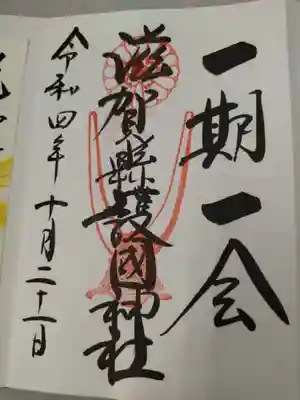 一期一会
滋賀縣護國神社
令和四年十月二十一日